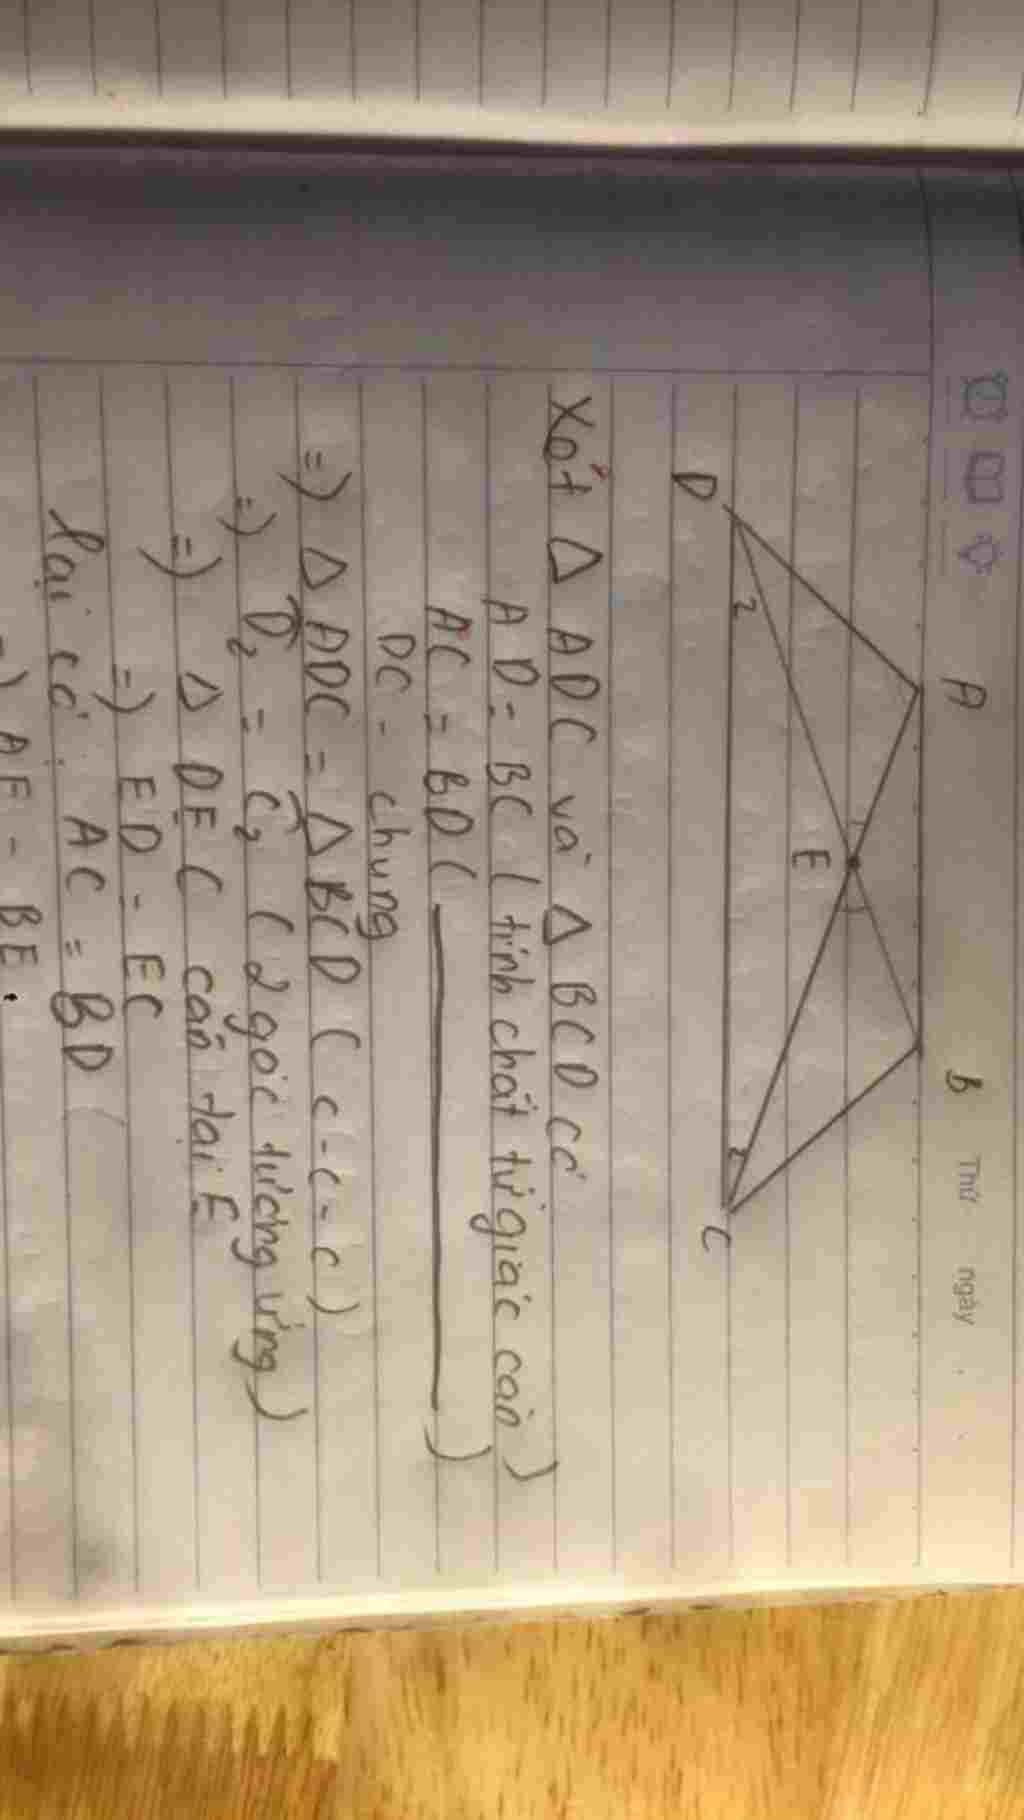 Thứ
ngày
A
B
E
D
2
2
C
Xét Δ ADC và Δ BCD có
AD = BC ( tính chất tứ giác cân )
AC = BD ( ——— )
DC - chung
=) Δ ADC = Δ BCD ( c-c-c )
=) D̂₂ = Ĉ₂ ( 2 góc tương ứng )
=) Δ DEC cân tại E
=) ED = EC
Lại có: AC = BD
=) AE = BE.